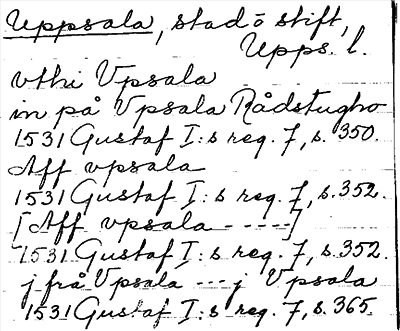 Uppsala, stad o stift,
Upps. l.
vthi Vpsala
in på Vpsala Rådstugho
1531 Gustaf I:s reg. 7, s. 350.
Aff vpsala
1531 Gustaf I:s reg. 7, s. 352.
[Aff vpsala - - - - -]
1531 Gustaf I:s reg. 7, s. 352.
j från Vpsala - - - j Vpsala
1531 Gustaf I:s reg. 7, s. 365.